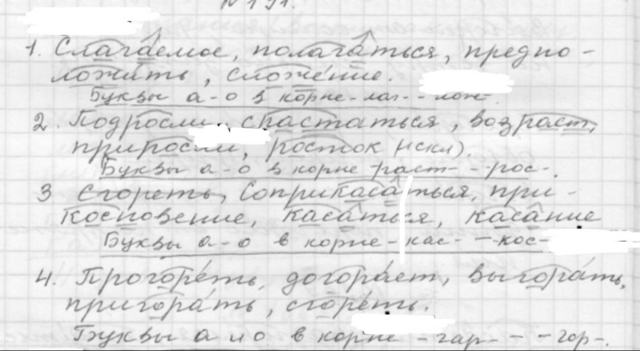 № 191.
1. Слагаемое, полагаться, предпо-
ложить, сложение.
Буквы а-о в корне -лаг- -лож-.
2. Подросли, срастаться, возраст,
приросли, росток (искл).
Буквы а-о в корне -раст- -рос-.
3 сгореть, Соприкасаться, при-
косновение, касаться, касание
Буквы а-о в корне -кас- -кос-
4. Прогореть, догорает, выгорать,
пригорать, сгореть.
Буквы а и о в корне -гар- - -гор-.